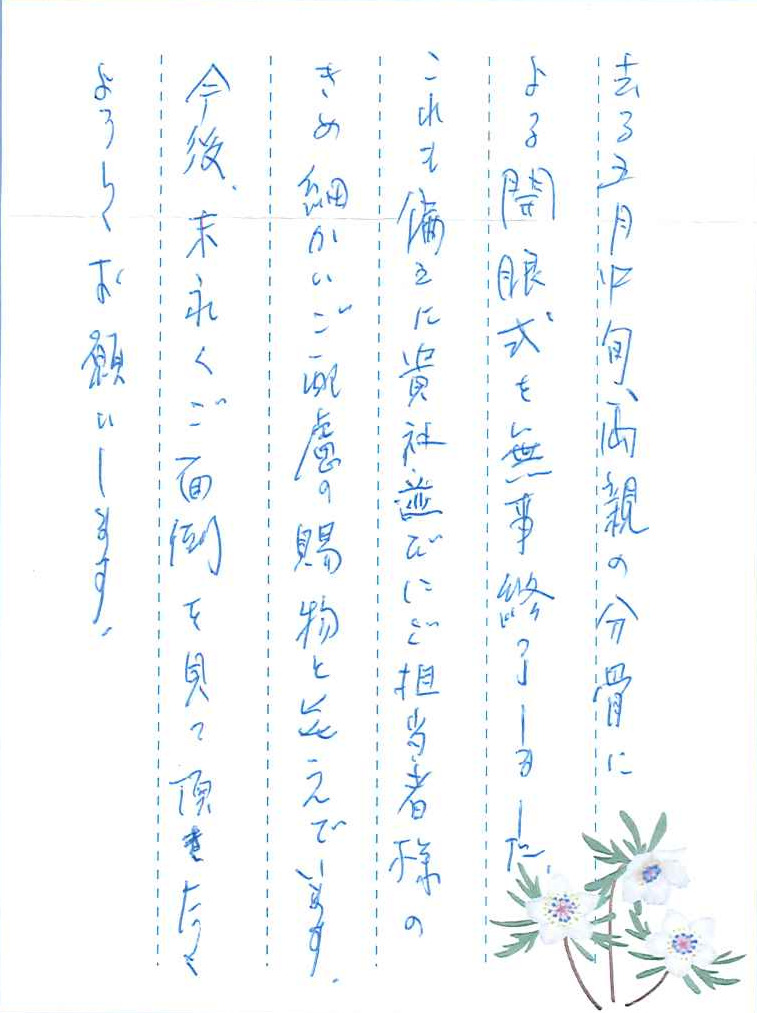 去る五月中旬、両親の分骨に
よる開眼式を無事終了しました。
これも偏えに貴社並びにご担当者様の
きめ細かいご配慮の賜物と考えています。
今後、末永くご面倒を見て頂きたく
よろしくお願いします。